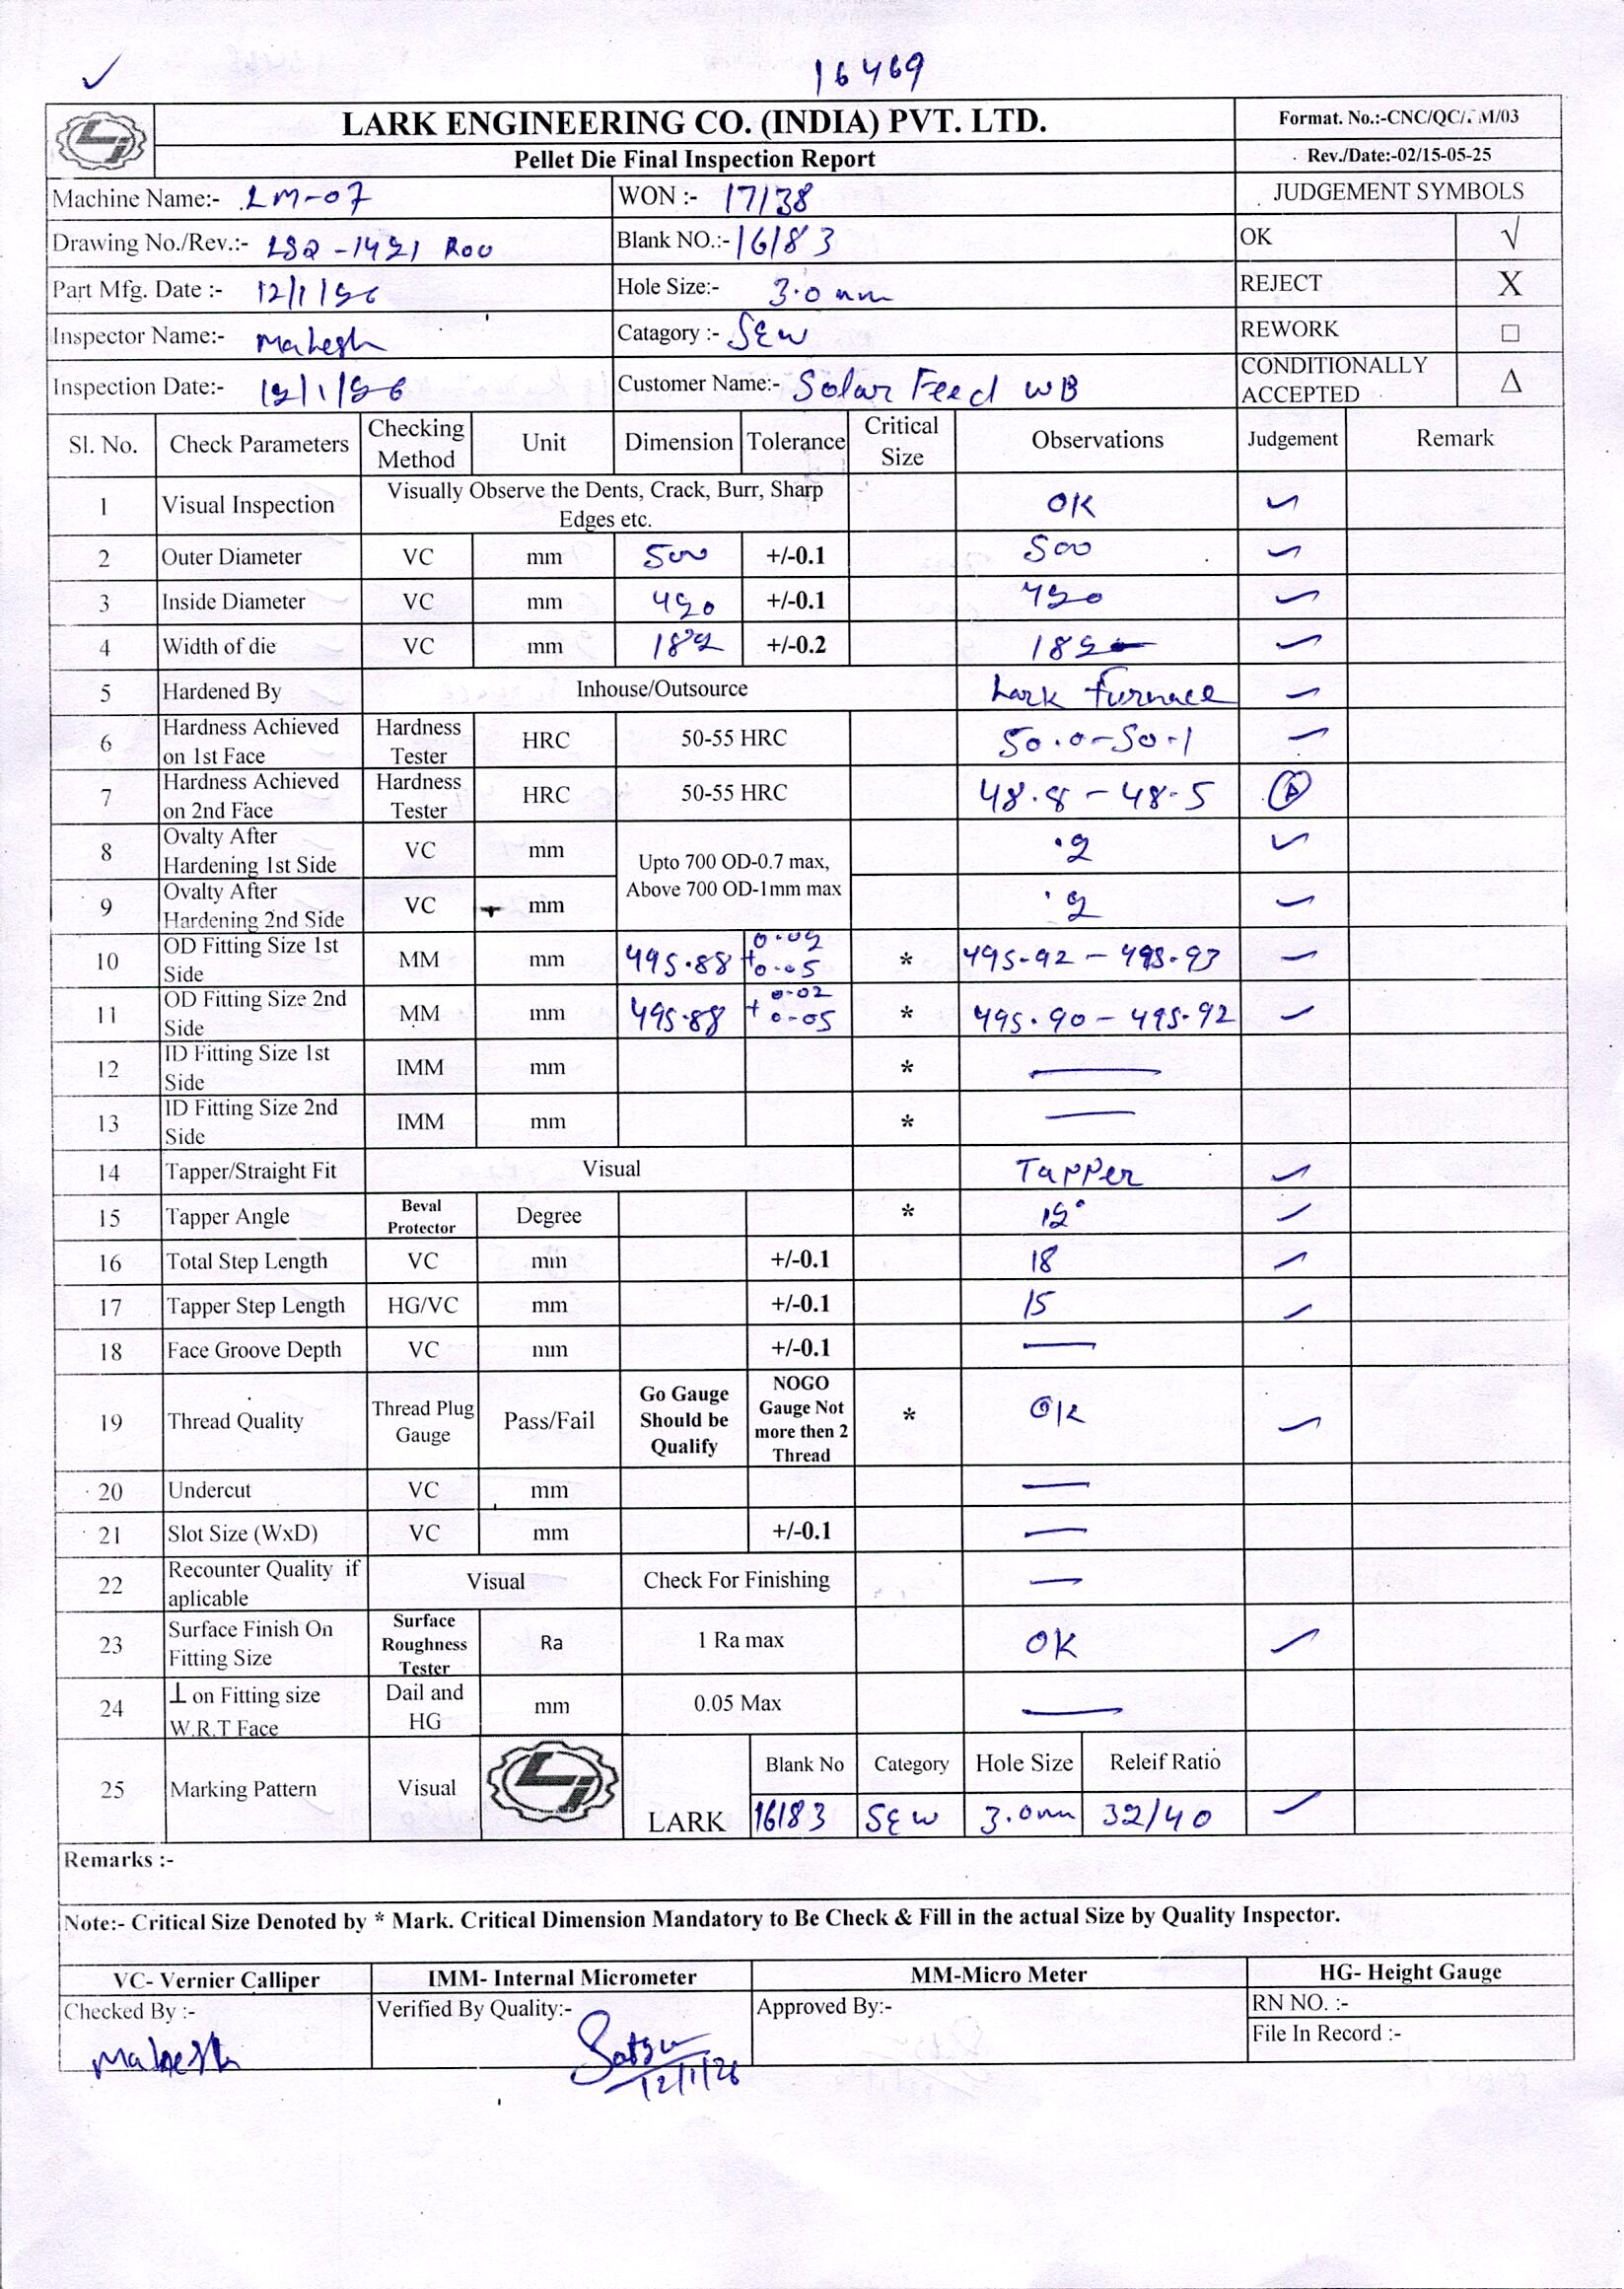 16469
LARK ENGINEERING CO. (INDIA) PVT. LTD.
Format. No.:-CNC/QC/. M/03
Pellet Die Final Inspection Report
Rev./Date:-02/15-05-25
Machine Name:- LM-07
WON :- 17138
JUDGEMENT SYMBOLS
Drawing No./Rev.:- LSD-1421 R00
Blank NO.:- 16183
OK √
Part Mfg. Date :- 12/1/26
Hole Size:- 3.0 mm
REJECT X
Inspector Name:- Mahesh
Catagory :- SEW
REWORK □
Inspection Date:- 12/1/26
Customer Name:- Solar Feed WB
CONDITIONALLY ACCEPTED Δ
Sl. No. Check Parameters Checking Method Unit Dimension Tolerance Critical Size Observations Judgement Remark
1 Visual Inspection Visually Observe the Dents, Crack, Burr, Sharp Edges etc. OK ✓
2 Outer Diameter VC mm 500 +/-0.1 500 ✓
3 Inside Diameter VC mm 420 +/-0.1 420 ✓
4 Width of die VC mm 182 +/-0.2 182 ✓
5 Hardened By Inhouse/Outsource Lark Furnace ✓
6 Hardness Achieved on 1st Face Hardness Tester HRC 50-55 HRC 50.0-50.1 ✓
7 Hardness Achieved on 2nd Face Hardness Tester HRC 50-55 HRC 48.8-48.5
8 Ovalty After Hardening 1st Side VC mm Upto 700 OD-0.7 max, Above 700 OD-1mm max .2 ✓
9 Ovalty After Hardening 2nd Side VC mm .2 ✓
10 OD Fitting Size 1st Side MM mm 495.88 + 0.02 0.05 * 495.92 - 495.93 ✓
11 OD Fitting Size 2nd Side MM mm 495.88 + 0.02 0.05 * 495.90 - 495.92 ✓
12 ID Fitting Size 1st Side IMM mm * —
13 ID Fitting Size 2nd Side IMM mm * —
14 Tapper/Straight Fit Visual Tapper ✓
15 Tapper Angle Beval Protector Degree * 12° ✓
16 Total Step Length VC mm +/-0.1 18 ✓
17 Tapper Step Length HG/VC mm +/-0.1 15 ✓
18 Face Groove Depth VC mm +/-0.1 —
19 Thread Quality Thread Plug Gauge Pass/Fail Go Gauge Should be Qualify NOGO Gauge Not more then 2 Thread * OK ✓
20 Undercut VC mm —
21 Slot Size (WxD) VC mm +/-0.1 —
22 Recounter Quality if aplicable Visual Check For Finishing —
23 Surface Finish On Fitting Size Surface Roughness Tester Ra 1 Ra max OK ✓
24 ⊥ on Fitting size W.R.T Face Dail and HG mm 0.05 Max —
25 Marking Pattern Visual LARK Blank No Category Hole Size Releif Ratio
16183 SEW 3.0mm 32/40 ✓
Remarks :-
Note:- Critical Size Denoted by * Mark. Critical Dimension Mandatory to Be Check & Fill in the actual Size by Quality Inspector.
VC- Vernier Calliper IMM- Internal Micrometer MM-Micro Meter HG- Height Gauge
Checked By :- Verified By Quality:- Approved By:- RN NO. :-
File In Record :-
Mahesh
12/1/26